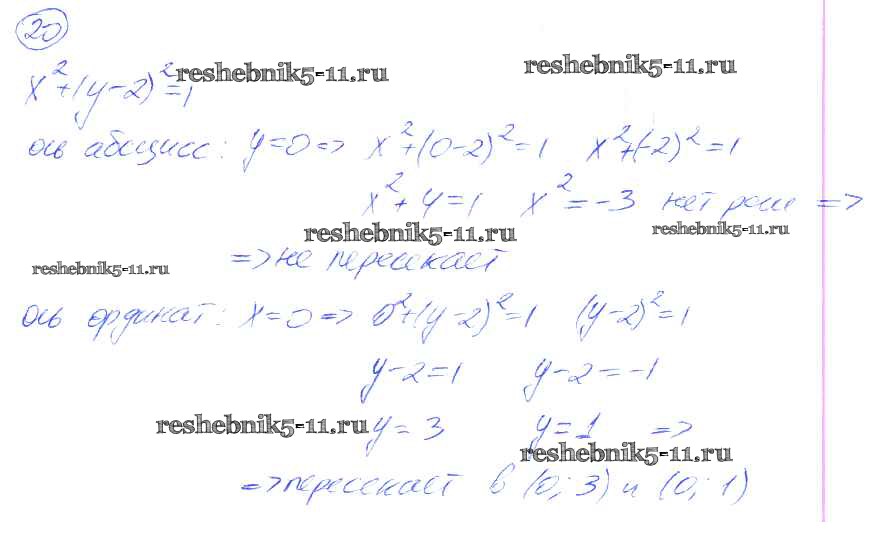 20
reshebnik5-11.ru reshebnik5-11.ru
x²+(y-2)²=1
ось абсцисс: y=0 => x²+(0-2)²=1 x²+(-2)²=1
x²+4=1 x²=-3 нет реш =>
reshebnik5-11.ru reshebnik5-11.ru
=> не пересекает
reshebnik5-11.ru
ось ординат: x=0 => 0²+(y-2)²=1 (y-2)²=1
y-2=1 y-2=-1
reshebnik5-11.ru y=3 y=1 =>
reshebnik5-11.ru
=> пересекает в (0; 3) и (0; 1)